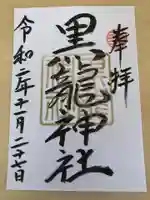 奉拝
黒龍神社
令和二年十一月二十七日